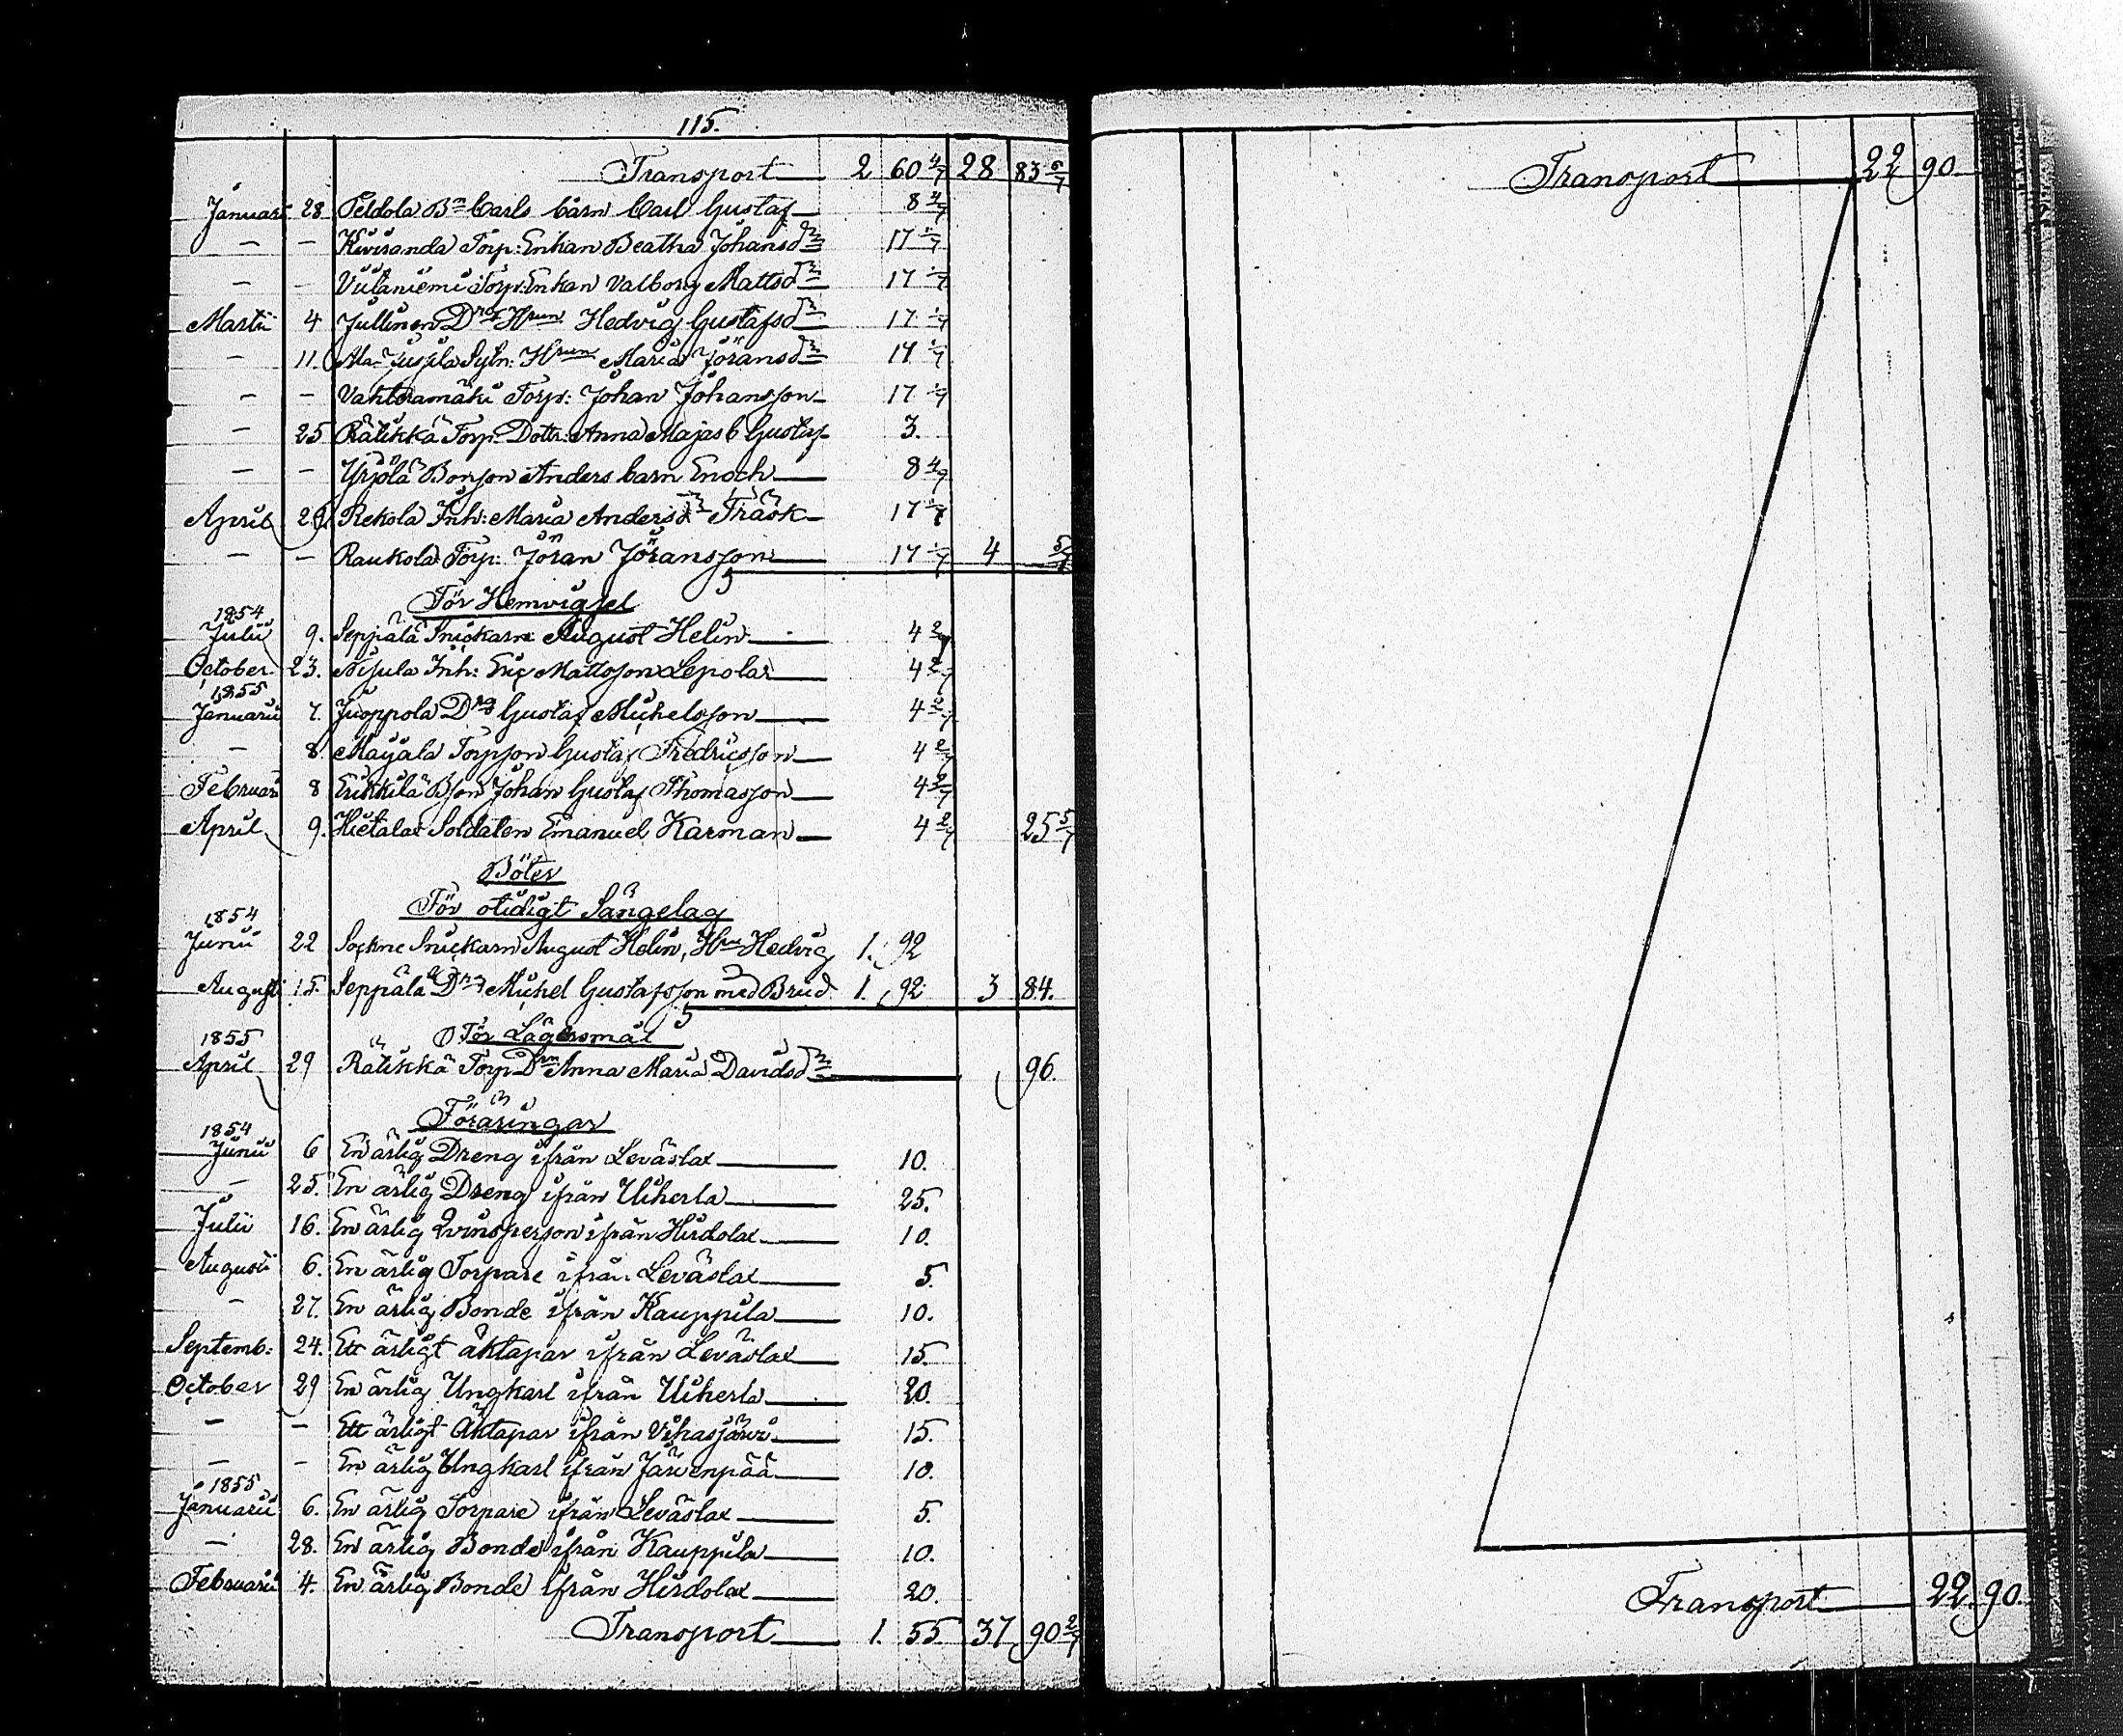 115.
Transport 2 60 4/7 28 83 6/7
Januari 28 Peldola Bn Carls barn Carl Gustaf 8 4/7
— — Kivisanda Torp: Enkan Beatha Johansdr 17 1/7
— — Viitaniemi Torp: Enkan Valborg Mattsdr 17 1/7
Martii 4 Jullinen Drgs Hrun Hedvig Gustafsdr 17 1/7
— 11. Ala- Sytn: Hrun Maria Jöransdr 17 1/7
— — Vahteramäki Torp: Johan Johansson 17 1/7
— 25 Rätikkä Torp: Dottr: Anna Majas b Gustaf 3.
— — Yrjölä Bonson Anders barn Enoch 8 4/7
April 29 Rekola Inh: Maria Andersdr Träsk 17 1/7
— — Raukola Torp: Jöran Jöransson 17 1/7 4 5/7
För Hemvigsel
1854
Julii 9. Seppälä Snickarn August Helin 4 2/7
October 23. Nijula Inh: Eric Mattsson Lepola 4 2/7
1855
Januarii 7. Juoppola Drg Gustaf Michelsson 4 2/7
— 8. Mayala Torpson Gustaf Fredricsson 4 2/7
Februari 8 Erikkilä Bson Johan Gustaf Thomasson 4 2/7
April 9. Hietala Soldaten Emanuel Karman 4 2/7 25 5/7
Böter
För otidigt Sängelag
1854
Junii 22 Sockne Snickarn August Helin, Hru Hedvig 1. 92
Augusti 15. Seppälä Drg Michel Gustafsson med Brud 1. 92 3 84.
För Lägersmål
1855
April 29 Rätikkä Torp Drn Anna Maria Davidsdr 96.
Föräringar
1854
Junii 6 En ärlig Dreng ifrån Leväslax 10.
— 25. En ärlig Dreng ifrån Uiherla 25.
Julii 16. En ärlig Qvinsperson ifrån Hirdola 10.
Augusti 6. En ärlig Torpare ifrån Leväslax 5.
— 27. En ärlig Bonde ifrån Kauppila 10.
Septemb: 24. Ett ärligt äktapar ifrån Leväslax 15.
October 29 En ärlig Ungkarl ifrån Uiherla 20.
— — Ett ärligt Äktapar ifrån Vihasjärvi 15.
— — En ärlig Ungkarl ifrån Järvenpää 10.
1855
Januarii 6. En ärlig Torpare ifrån Leväslax 5.
— 28. En ärlig Bonde ifrån Kauppila 10.
Februarii 4. En ärlig Bonde ifrån Hirdola 20.
Transport 1. 55 37 90 2/7
Transport 22 90
Transport 22. 90.